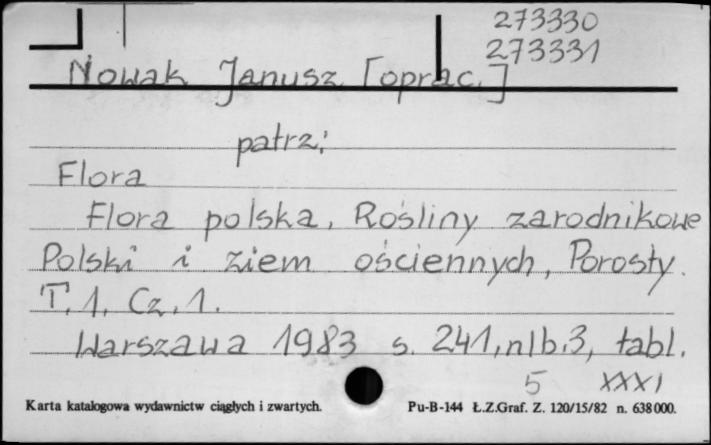 273330
273331
Nowak Janusz [oprac.]
patrz:
Flora
Flora polska, Rośliny zarodnikowe
Polski i ziem ościennych, Porosty.
T. 1, Cz. 1.
Warszawa 1983 s. 241, nlb. 3, tabl.
5 XXXI
Karta katalogowa wydawnictw ciągłych i zwartych. Pu-B-144 Ł.Z.Graf. Z. 120/15/82 n. 638000.